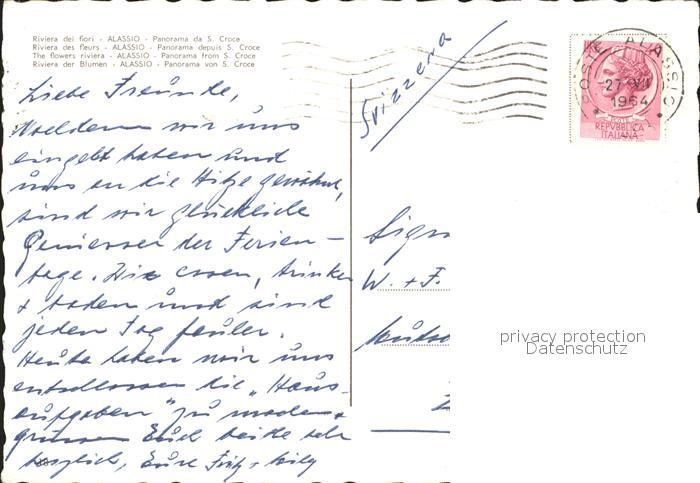 Riviera dei fiori - ALASSIO - Panorama da S. Croce
Riviera des fleurs - ALASSIO - Panorama depuis S. Croce
The flowers riviera - ALASSIO - Panorama from S. Croce
Riviera der Blumen - ALASSIO - Panorama von S. Croce
Liebe Freunde,
Nachdem wir uns
eingelebt haben und
uns an die Hitze gewöhnt,
sind wir glückliche
Geniesser der Ferien-
tage. Wir essen, trinken
+ baden und sind
jeden Tag fauler.
Heute haben wir uns
entschlossen die „Haus-
aufgaben" zu machen +
grüssen Euch beide sehr
herzlich, Eure Fritz + Willy
Svizzera
POSTE ALASSIO
27 VII
1964
POSTE
REPVBBLICA
ITALIANA
Sign
W. + F.
privacy protection
Datenschutz